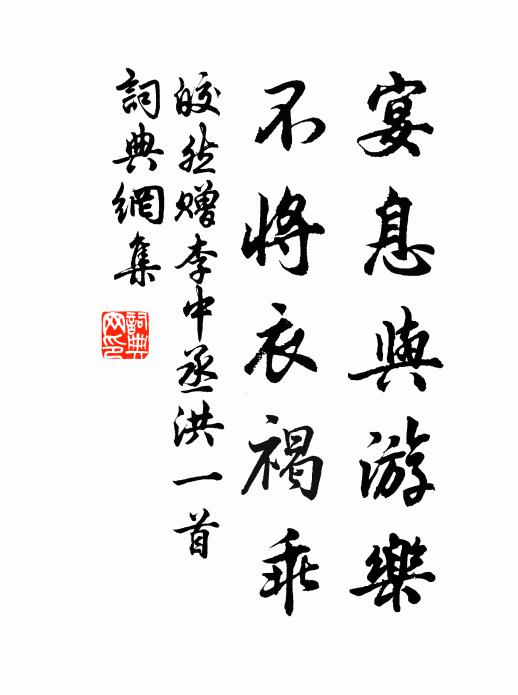 宴息與游樂
不將衣褐乖
皎然贈李中丞洪一首
詞典網集
詞典網印